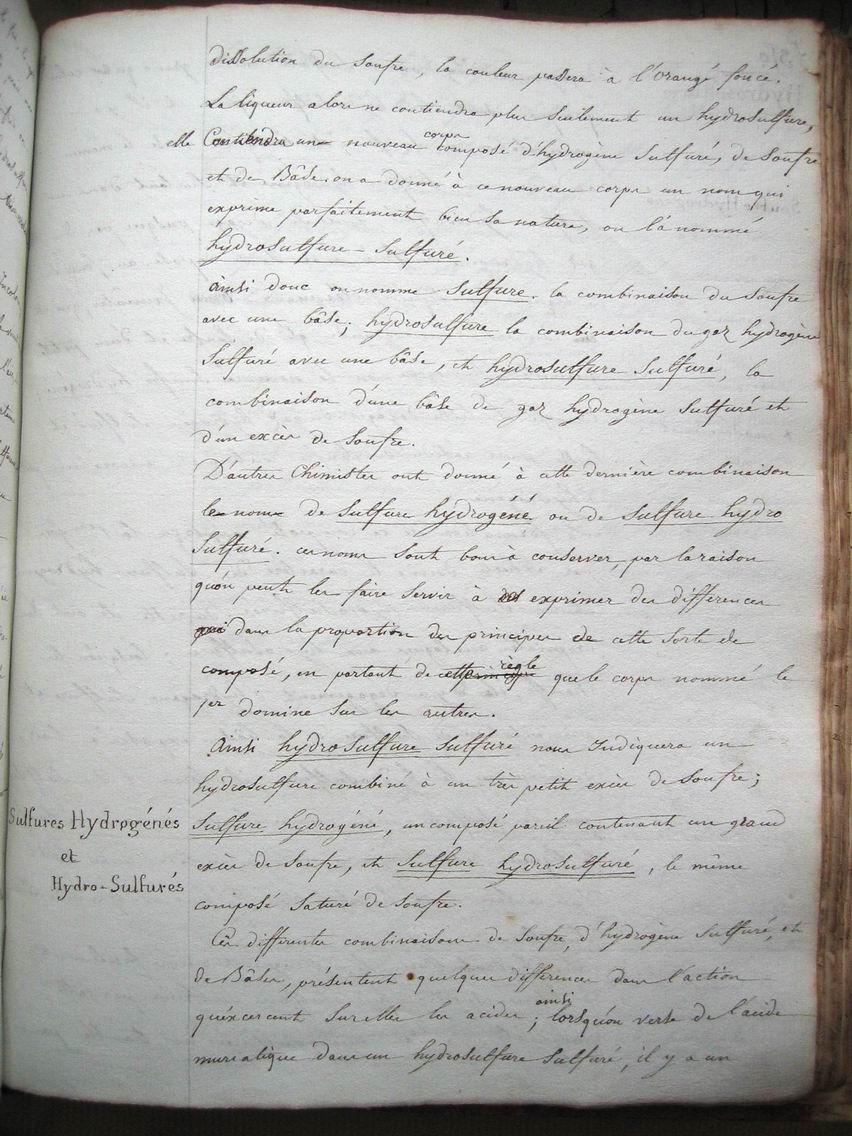 dissolution du soufre, la couleur passera à l'orangé foncé.
La liqueur alors ne contiendra plus seulement un hydrosulfure,
elle Contiendra un nouveau corps composé d'hydrogène sulfuré, de soufre
et de Bâse. on a donné à ce nouveau corps un nom qui
exprime parfaitement bien sa nature, on l'a nommé
hydrosulfure-sulfuré.
Ainsi donc on nomme sulfure. la combinaison du soufre
avec une bâse; hydrosulfure la combinaison du gaz hydrogène
sulfuré avec une bâse, et hydrosulfure sulfuré, la
combinaison d'une bâse de gaz hydrogène sulfuré et
d'un excès de soufre.
D'autres Chimistes ont donné à cette dernière combinaison
le nom de sulfure hydrogéné ou de sulfure hydro
sulfuré. ces noms sont bons à conserver, par la raison
qu'on peut les faire servir à exprimer des différences
qui dans la proportion des principes de cette sorte de
composé, en partant de cette principe règle que le corps nommé le
1er domine sur les autres.
Ainsi hydrosulfure sulfuré nous Indiquera un
hydrosulfure combiné à un très petit excès de soufre;
Sulfures Hydrogénés
et
Hydro-Sulfurés
sulfure hydrogéné, un composé pareil contenant un grand
excès de soufre, et sulfure hydrosulfuré, le même
composé saturé de soufre.
Ces différentes combinaisons de soufre, d'hydrogène sulfuré, et
de Bâses, présentent quelques différences dans l'action
qu'éxcercent sur elles les acides; ainsi lorsqu'on verse de l'acide
muriatique dans un hydrosulfure sulfuré, il y a un